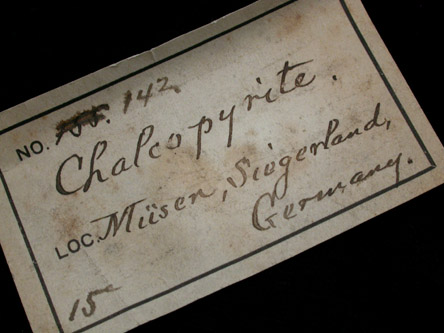 NO. 155. 142.
Chalcopyrite.
LOC. Müsen, Siegerland,
Germany.
15¢